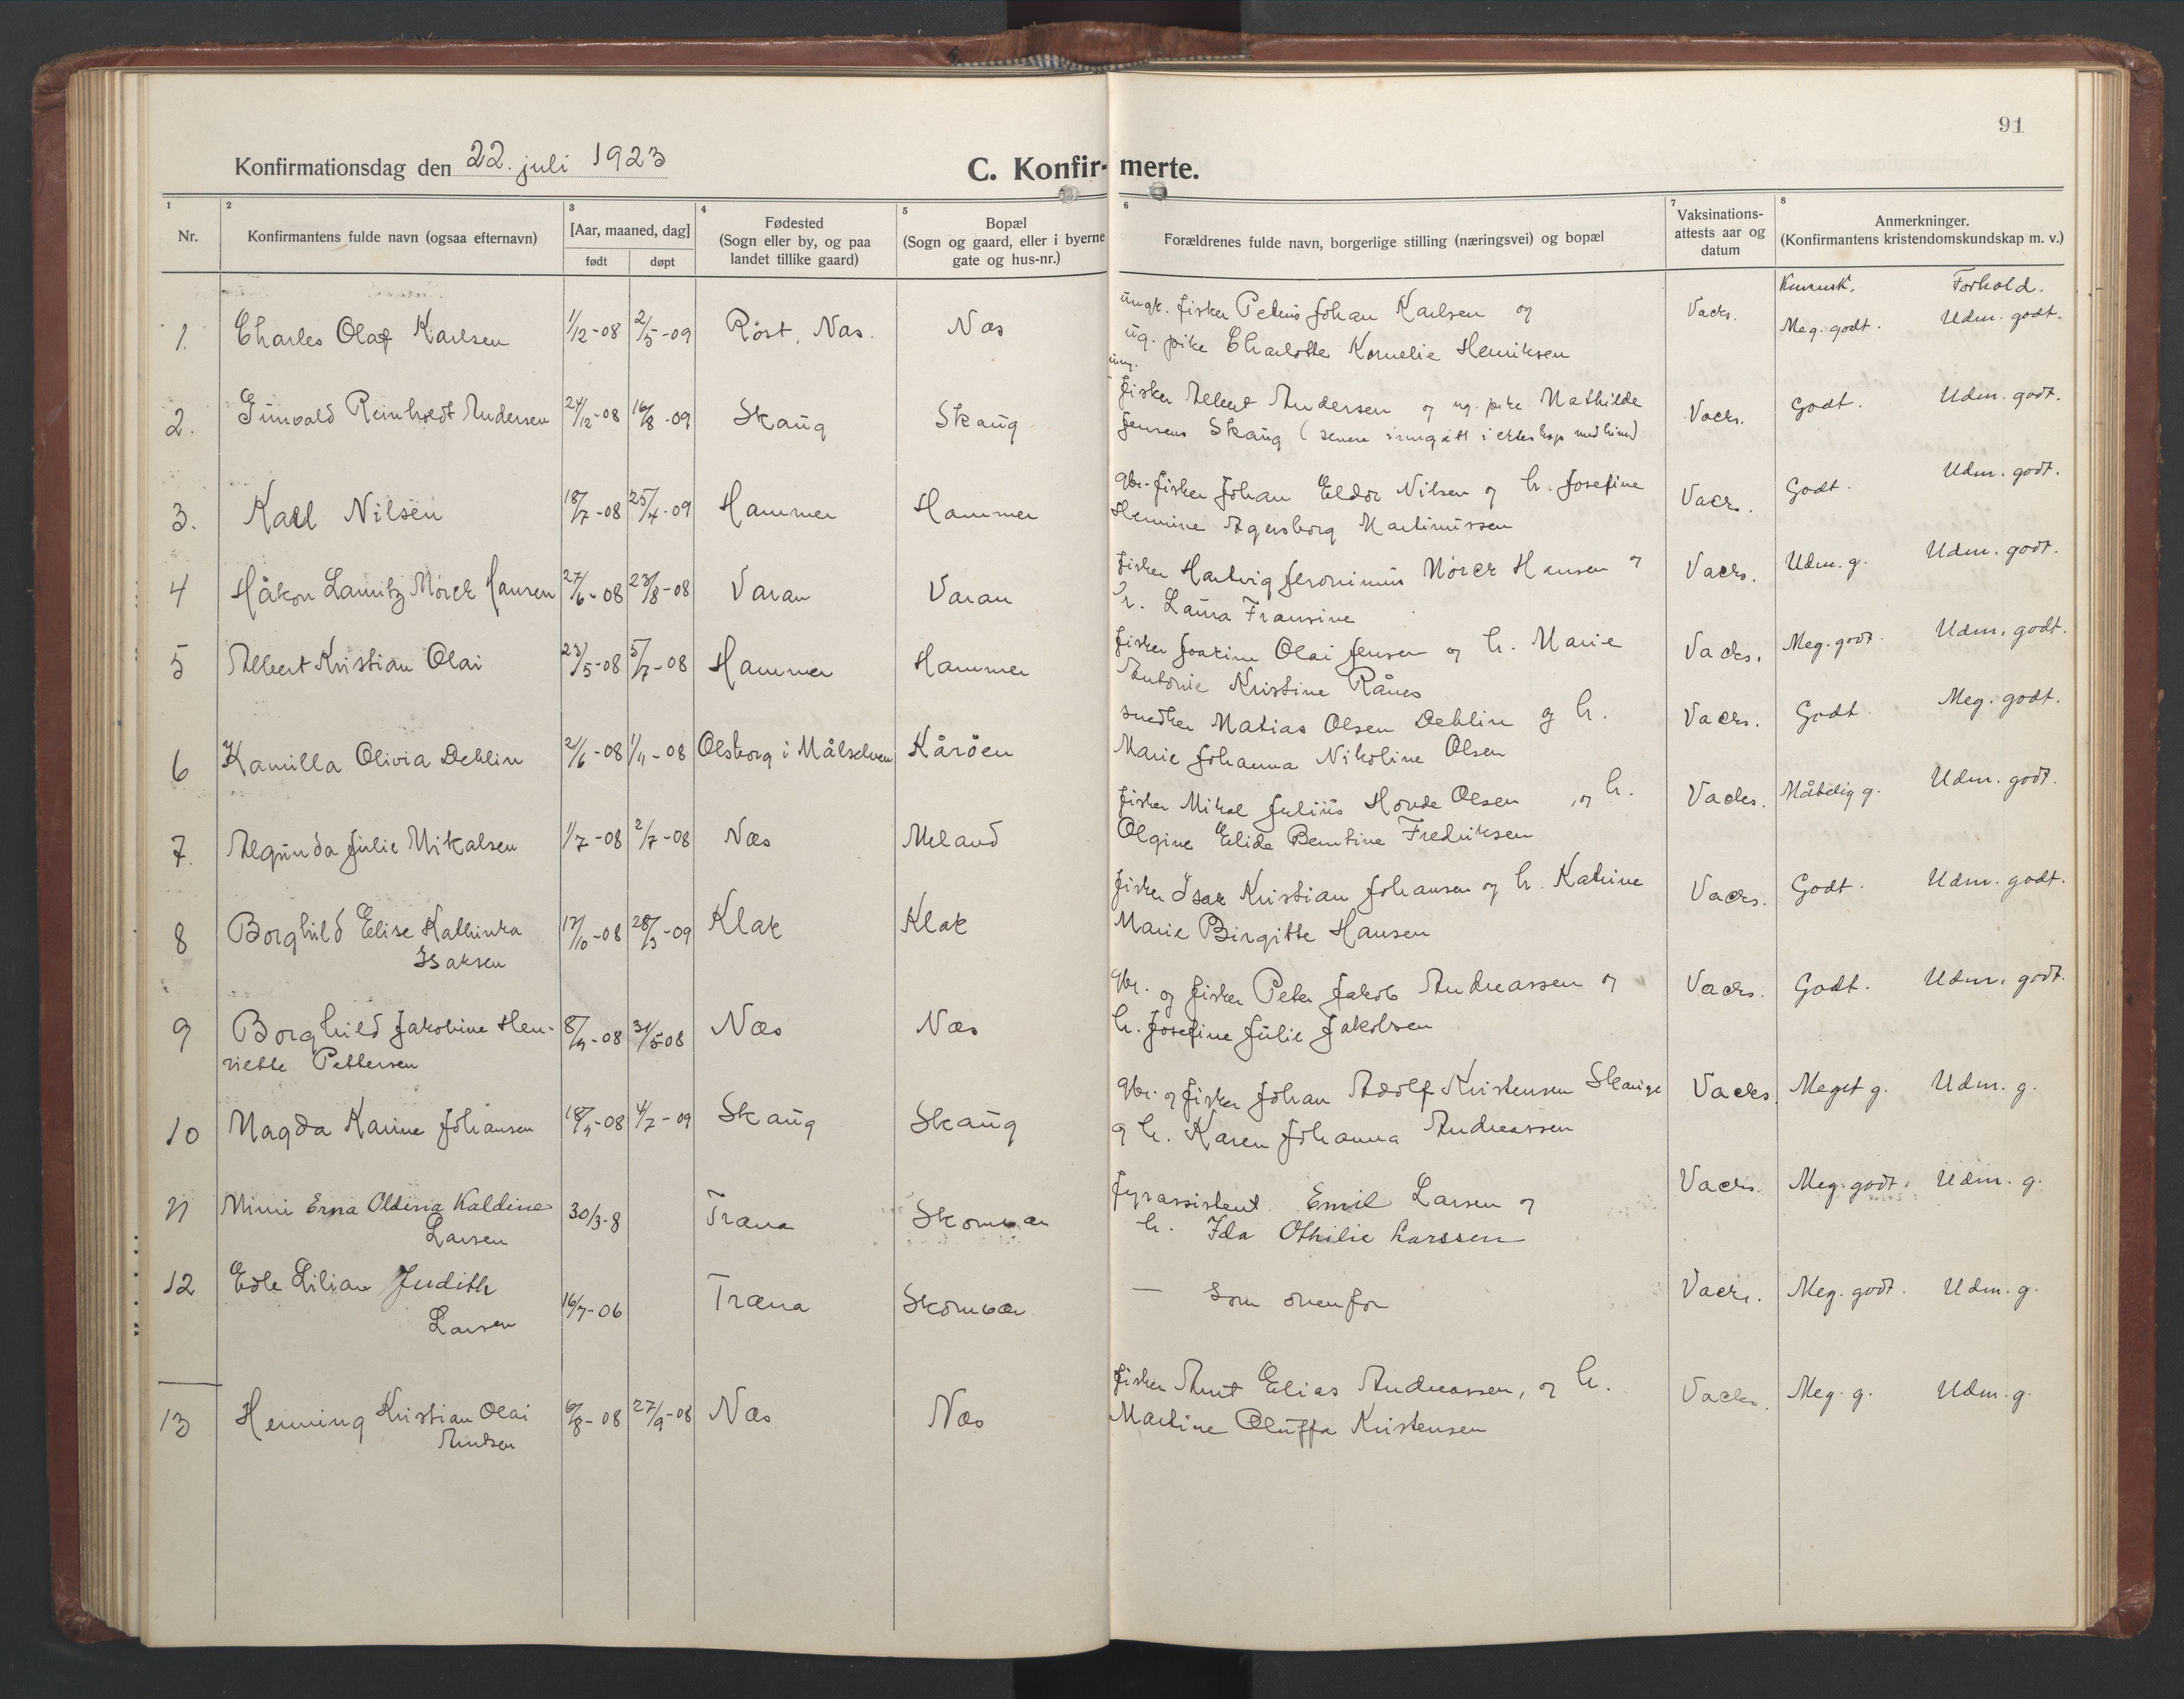 91
Konfirmationsdag den 22. juli 1923
C. Konfir- merte.
1 2 3 4 5 6 7 8
Nr.
Konfirmantens fulde navn (ogsaa efternavn)
[Aar, maaned, dag]
født døpt
Fødested
(Sogn eller by, og paa
landet tillike gaard)
Bopæl
(Sogn og gaard, eller i byerne
gate og hus-nr.)
Forældrenes fulde navn, borgerlige stilling (næringsvei) og bopæl
Vaksinations-
attests aar og
datum
Anmerkninger.
(Konfirmantens kristendomskundskap m. v.)
Kunnsk. Forhold.
1. Charles Olaf Karlsen 1/12-08 2/5-09 Röst, Næs. Næs
ungk. fisker Petrus Johan Karlsen og
ug. pike Charlotte Kornelie Henriksen
Vacks. Meg. godt. Udm. godt.
2. Gunvald Reinholdt Andersen 24/12-08 16/8-09 Skaug Skaug
ung.
fisker Albert Andersen og ug. pike Mathilde
Jensens Skaug (senere inngått i ekteskap med hine)
Vacks. Godt. Udm. godt.
3. Karl Nilsen 18/7-08 25/4-09 Hammer Hammer
gbr.-fisker Johan Eldor Nilsen og h. Josefine
Hermine Agersborg Martinussen
Vacks. Godt. Udm. godt.
4 Håkon Lauritz Mörck Hansen 27/6-08 23/8-08 Varan Varan
fisker Hartvig Jeronimus Mörck Hansen og
h. Laura Fransine
Vacks. Udm. g. Udm. godt.
5 Albert Kristian Olai 23/5-08 5/7-08 Hammer Hammer
fisker Joakim Olai Jensen og h. Marie
Antonie Kristine Rånes
Vacks. Meg. godt. Udm. godt.
6 Kamilla Olivia Dehlin 21/6-08 1/11-08 Olsborg i Målselven Kåröen
snedker Matias Olsen Dehlin og h.
Marie Johanna Nikoline Olsen
Vacks. Godt. Meg. godt.
7. Algunda Julie Mikalsen 1/7-08 2/7-08 Næs Meland
fisker Mikal Julius Hovde Olsen, og h.
Olgine Elida Berntine Fredriksen
Vacks. Måtelig g. Udm. godt.
8 Borghild Elise Kathinka
Isaksen 17/10-08 28/3-09 Klak Klak
fisker Isak Kristian Johansen og h. Katrine
Marie Birgitte Hansen
Vacks. Godt. Udm. godt.
9 Borghild Jakobine Hen-
riette Pettersen 8/4-08 31/5 08 Næs Næs
gbr. og fisker Peter Jakob Andreassen og
h. Josefine Julie Jakobsen
Vacks. Godt. Udm. godt.
10 Magda Karine Johansen 18/9-08 4/7-09 Skaug Skaug
gbr. og fisker Johan Adolf Kristensen Skauge
og h. Karen Johanna Andreassen
Vacks. Meget g. Udm. g.
11 Mimi Erna Oldina Kaldine
Larsen 30/3-8 Træna Skomvær
fyrassistent. Emil Larsen og
h. Ida Othilie Larssen
Vacks. Meg. godt. Udm. g.
12 Edle Lilian Judith
Larsen 16/7-06 Træna Skomvær
— Som ovenfor
Vacks. Meg. godt. Udm. g.
13 Henning Kristian Olai
Arntsen 6/8-08 27/9-08 Næs Næs
fisker Arnt Elias Andreassen, og h.
Martine Oluffa Kristensen
Vacks. Meg. g. Udm. g.